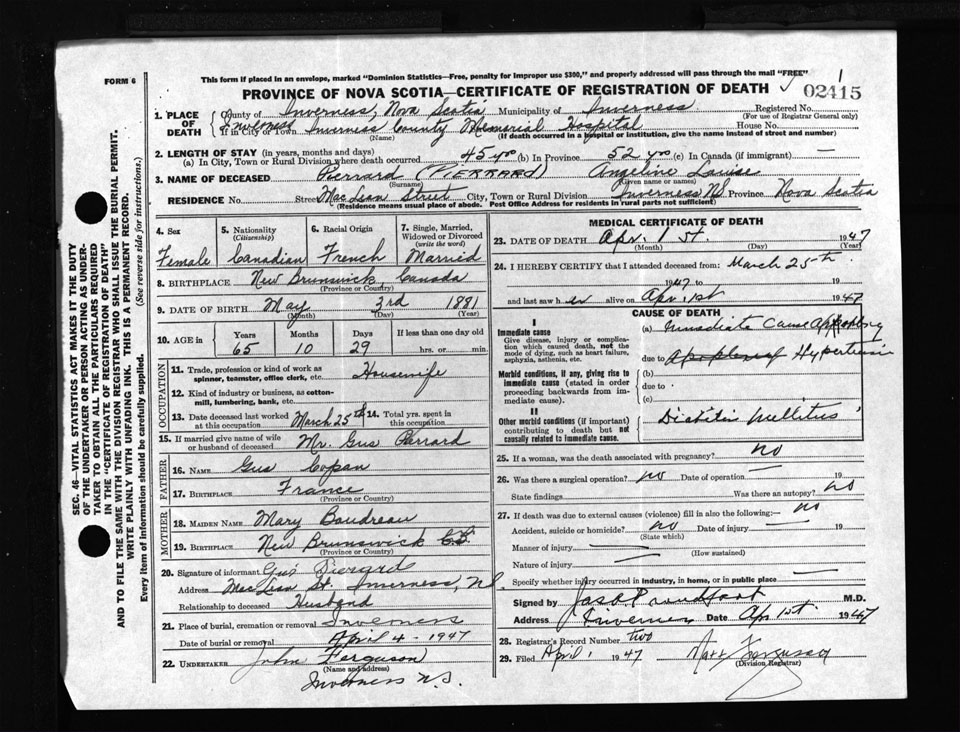 FORM 6
This form if placed in an envelope, marked "Dominion Statistics—Free, penalty for improper use $300," and properly addressed will pass through the mail "FREE"
PROVINCE OF NOVA SCOTIA—CERTIFICATE OF REGISTRATION OF DEATH
1
02415
1. PLACE OF DEATH
County of Inverness, Nova Scotia Municipality of Inverness Registered No.
(For use of Registrar General only)
Inverness
If in City or Town Inverness County Memorial Hospital House No.
(Name) (If death occurred in a hospital or institution, give the name instead of street and number)
2. LENGTH OF STAY (in years, months and days)
(a) In City, Town or Rural Division where death occurred 45 yrs (b) In Province 52 yrs (c) In Canada (if immigrant) —
3. NAME OF DECEASED Pierrard (PIERRARD) Angeline Louise
(Surname) (Given name or names)
RESIDENCE No. Street MacLean Street City, Town or Rural Division Inverness NS Province Nova Scotia
(Residence means usual place of abode. Post Office Address for residents in rural parts not sufficient)
4. Sex Female
5. Nationality (Citizenship) Canadian
6. Racial Origin French
7. Single, Married, Widowed or Divorced (write the word) Married
8. BIRTHPLACE New Brunswick Canada
(Province or Country)
9. DATE OF BIRTH May 3rd 1881
(Month) (Day) (Year)
10. AGE in Years Months Days If less than one day
65 10 29 hrs. or min.
OCCUPATION
11. Trade, profession or kind of work as spinner, teamster, office clerk, etc. Housewife
12. Kind of industry or business, as cotton-mill, lumbering, bank, etc.
13. Date deceased last worked at this occupation March 25th
14. Total yrs. spent in this occupation
15. If married give name of wife or husband of deceased Mr. Gus Perrard
FATHER
16. NAME Gus Copan
17. BIRTHPLACE France
(Province or Country)
MOTHER
18. MAIDEN NAME Mary Boudreau
19. BIRTHPLACE New Brunswick
(Province or Country)
20. Signature of informant Gus Pierard
Address MacLean St. Inverness, NS
Relationship to deceased Husband
21. Place of burial, cremation or removal Inverness
Date of burial or removal April 4 - 1947
22. UNDERTAKER John Ferguson
(Name and address)
Inverness N.S.
MEDICAL CERTIFICATE OF DEATH
23. DATE OF DEATH Apr. 1st. 1947
(Month) (Day) (Year)
24. I HEREBY CERTIFY that I attended deceased from March 25th
1947 to
and last saw her alive on Apr. 1st 1947
CAUSE OF DEATH
I
Immediate cause
Give disease, injury or complication which caused death, not the mode of dying, such as heart failure, asphyxia, asthenia, etc.
(a) Immediate Cause Apoplexy
due to Hypertension
Morbid conditions, if any, giving rise to immediate cause (stated in order proceeding backwards from immediate cause).
(b)
due to
(c)
II
Other morbid conditions (if important) contributing to death but not causally related to immediate cause.
Diabetis Mellitus
25. If a woman, was the death associated with pregnancy? no
26. Was there a surgical operation? no Date of operation — 19
State findings Was there an autopsy? no
27. If death was due to external causes (violence) fill in also the following:— no
Accident, suicide or homicide? no Date of injury — 19
(State which)
Manner of injury —
(How sustained)
Nature of injury —
Specify whether injury occurred in industry, in home, or in public place —
Signed by M.D.
Address Inverness Date Apr 1st. 1947
28. Registrar's Record Number two
29. Filed April 1 1947 Ferguson
(Division Registrar)
SEC. 46—VITAL STATISTICS ACT MAKES IT THE DUTY
OF THE UNDERTAKER OR PERSON ACTING AS UNDER-
TAKER TO OBTAIN ALL THE PARTICULARS REQUIRED
IN THE "CERTIFICATE OF REGISTRATION OF DEATH"
AND TO FILE THE SAME WITH THE DIVISION REGISTRAR WHO SHALL ISSUE THE BURIAL PERMIT.
WRITE PLAINLY WITH UNFADING INK. THIS IS A PERMANENT RECORD.
Every item of information should be carefully supplied. (See reverse side for instructions.)